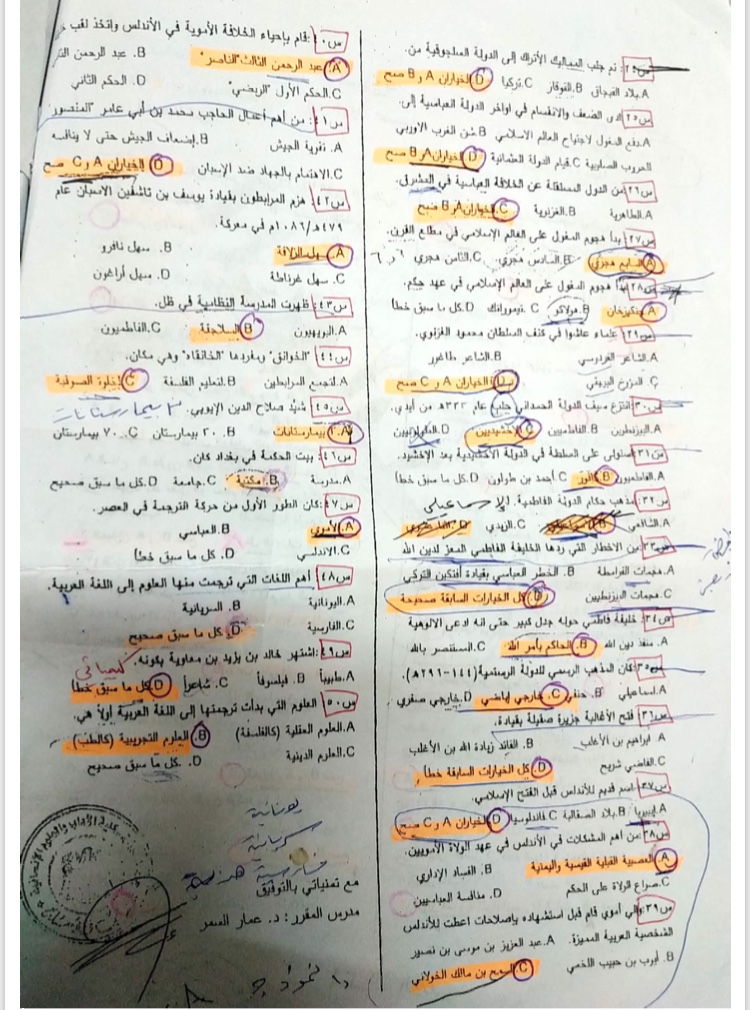 س٢٤: تم جلب المماليك الأتراك إلى الدولة السلجوقية من.
A.بلاد القبجاق B.القوقاز C.تركيا D.الخياران A و B صح
س٢٥: أدى الضعف والانقسام في اواخر الدولة العباسية إلى.
A.دفع المغول لاجتياح العالم الاسلامي B.شن الغرب الاوربي
الحروب الصليبية C.قيام الدولة العثمانية D.الخياران A و B صح
س٢٦: من الدول المستقلة عن الخلافة العباسية في المشرق.
A.الطاهرية B.الغزنوية C.الخياران A و B صح
س٢٧: بدأ هجوم المغول على العالم الإسلامي في مطلع القرن.
A.السابع هجري B.السادس هجري C.الثامن هجري
س٢٨: بدأ هجوم المغول على العالم الإسلامي في عهد حكم.
A.جنكيزخان B.هولاكو C.تيمورلنك D.كل ما سبق خطأ
س٢٩: علماء عاشوا في كنف السلطان محمود الغزنوي.
A.الشاعر الفردوسي B.الشاعر طاغور
C.المؤرخ البيهقي D.الخياران A و C صح
س٣٠: انتزع سيف الدولة الحمداني حلب عام ٣٣٣هـ من أيدي.
A.البيزنطيين B.الفاطميين C.الإخشيديين
س٣١: استولى على السلطة في الدولة الأخشيدية بعد الإخشيد.
A.الفاطميون B.كافور C.أحمد بن طولون D.كل ما سبق خطأ
س٣٢: مذهب حكام الدولة الفاطمية. الإسماعيلي
A.الشافعي C.الزيدي
س٣٣: من الاخطار التي ردها الخليفة الفاطمي المعز لدين الله
A.هجمات القرامطة B. الخطر العباسي بقيادة أفتكين التركي
C.هجمات البيزنطيين D.كل الخيارات السابقة صحيحة
س٣٤: خليفة فاطمي حوله جدل كبير حتى انه ادعى الالوهية
A.المعز لدين الله B.الحاكم بأمر الله C.المستنصر بالله
س٣٥: كان المذهب الرسمي للدولة الرستمية (١٤٤-٢٩٦هـ).
A.اسماعيلي B. حنفي C.خارجي إباضي D.خارجي صفري
س٣٦: فتح الأغالبة جزيرة صقيلة بقيادة.
A. ابراهيم بن الأغلب B. القائد زيادة الله بن الأغلب
C.القاضي شريح D.كل الخيارات السابقة خطأ
س٣٧: اسم قديم للأندلس قبل الفتح الإسلامي.
A.إيبيريا B.بلاد الصقالبة C.فاندلوسيا D.الخياران A و C صح
س٣٨: من أهم المشكلات في الأندلس في عهد الولاة الأمويين.
A.العصبية القبلية القيسية واليمانية B. الفساد الإداري
C.صراع الولاة على الحكم D. منافسة العباسيين
س٣٩: والي أموي قام قبل استشهاده بإصلاحات اعطت للأندلس
الشخصية العربية المميزة. A.عبد العزيز بن موسى بن نصير
B. أيوب بن حبيب اللخمي C.السمح بن مالك الخولاني
س٤٠: قام بإحياء الخلافة الأموية في الأندلس واتخذ لقب
A. عبد الرحمن الثالث "الناصر" B. عبد الرحمن
C.الحكم الأول "الربضي" D. الحكم الثاني
س٤١: من أهم أعمال الحاجب محمد بن أبي عامر "المنصور
A. تقوية الجيش B.إضعاف الجيش حتى لا ينافسه
C.الاهتمام بالجهاد ضد الإسبان D.الخياران A و C صح
س٤٢: هزم المرابطون بقيادة يوسف بن تاشفين الاسبان عام
٤٧٩هـ/١٠٨٦م في معركة.
A.سهل الزلاقة B. سهل نافرو
C. سهل غرناطة D. سهل أراغون
س٤٣: ظهرت المدرسة النظامية في ظل.
A.البويهيون B.السلاجقة C.الفاطميون
س٤٤: "الخوانق" ومفردها "الخانقاه" وهي مكان.
A.لتجمع المرابطين B.لتعليم الفلسفة C.لخلوة الصوفية
س٤٥: شيّد صلاح الدين الايوبي. ٣ بيمارستانات
A.٣ بيمارستانات B. ٢٠ بيمارستان C. ٧٠ بيمارستان
س٤٦: بيت الحكمة في بغداد كان.
A.مدرسة B.مكتبة C.جامعة D.كل ما سبق صحيح
س٤٧: كان الطور الأول من حركة الترجمة في العصر.
A.الأموي B.العباسي
C.الاندلسي D. كل ما سبق خطأ
س٤٨: أهم اللغات التي ترجمت منها العلوم إلى اللغة العربية.
A.اليونانية B. السريانية
C.الفارسية D.كل ما سبق صحيح
س٤٩: اشتهر خالد بن يزيد بن معاوية بكونه. كيميائي
A.طبيباً B. فيلسوفاً C. شاعراً D.كل ما سبق خطأ
س٥٠: العلوم التي بدأت ترجمتها إلى اللغة العربية أولاً هي.
A.العلوم العقلية (كالفلسفة) B.العلوم التجريبية (كالطب)
C.العلوم الدينية D. كل ما سبق صحيح
يونانية
سريانية
فارسية هندية
مع تمنياتي بالتوفيق
مدرس المقرر: د. عمار السمر
نموذج A